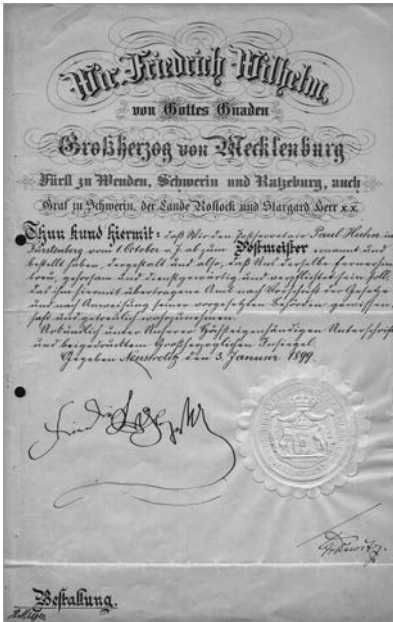 Wir Friedrich Wilhelm,
von Gottes Gnaden
Großherzog von Mecklenburg
Fürst zu Wenden, Schwerin und Ratzeburg, auch
Graf zu Schwerin, der Lande Rostock und Stargard Herr x x
Thun kund hiermit: daß Wir den Postsecretair Paul in
Fürstenberg vom 1. October v. J. ab zum Postmeister ernannt und
bestellt haben, dergestalt und also, daß Uns derselbe fernerhin
treu, gehorsam und dienstgewärtig und verpflichtet sein soll,
das ihm hiermit übertragene Amt nach Vorschrift der Gesetze
und nach Anweisung seiner vorgesetzten Behörden gewissen-
haft und getreulich wahrzunehmen.
Urkundlich unter Unserer Höchsteigenhändigen Unterschrift
und beigedrucktem Großherzoglichen Insiegel.
Gegeben Neustrelitz den 3. Januar 1899.
Bestallung.